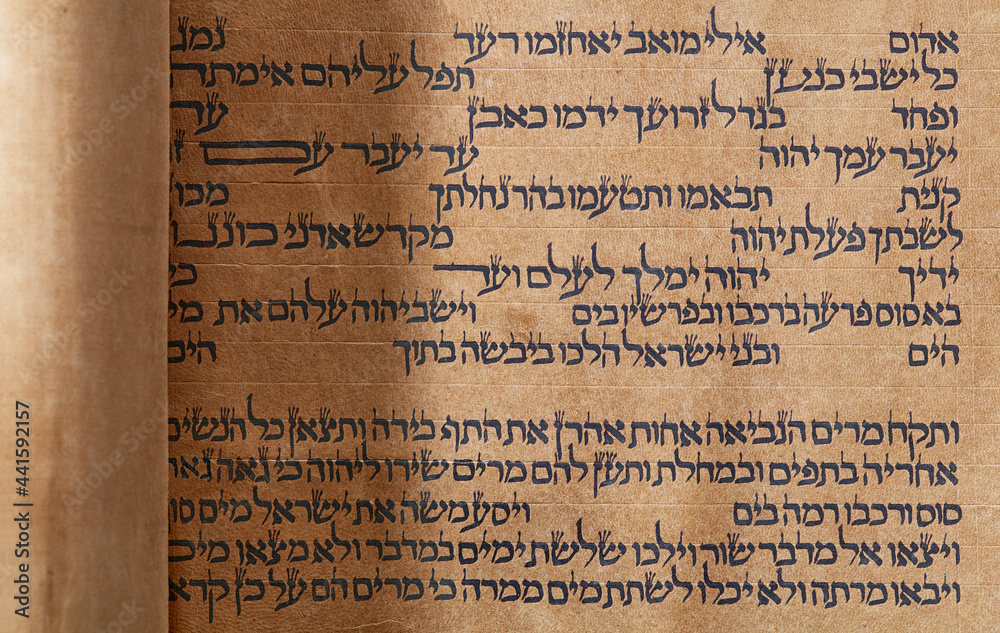 אדום אילי מואב יאחזמו רעד נמג
כל ישבי כנען תפל עליהם אימתה
ופחד בגדל זרועך ידמו כאבן עד
יעבר עמך יהוה עד יעבר עם ז
קנית תבאמו ותטעמו בהר נחלתך מכו
לשבתך פעלת יהוה מקדש אדני כוננו
ידיך יהוה ימלך לעלם ועד כי
בא סוס פרעה ברכבו ובפרשיו בים וישב יהוה עלהם את מי
הים ובני ישראל הלכו ביבשה בתוך הים
ותקח מרים הנביאה אחות אהרן את התף בידה ותצאן כל הנשים
אחריה בתפים ובמחלת ותען להם מרים שירו ליהוה כי גאה גאה
סוס ורכבו רמה בים ויסע משה את ישראל מים סו
ויצאו אל מדבר שור וילכו שלשת ימים במדבר ולא מצאו מים
ויבאו מרתה ולא יכלו לשתת מים ממרה כי מרים הם על כן קרא
Adobe Stock | #441592157